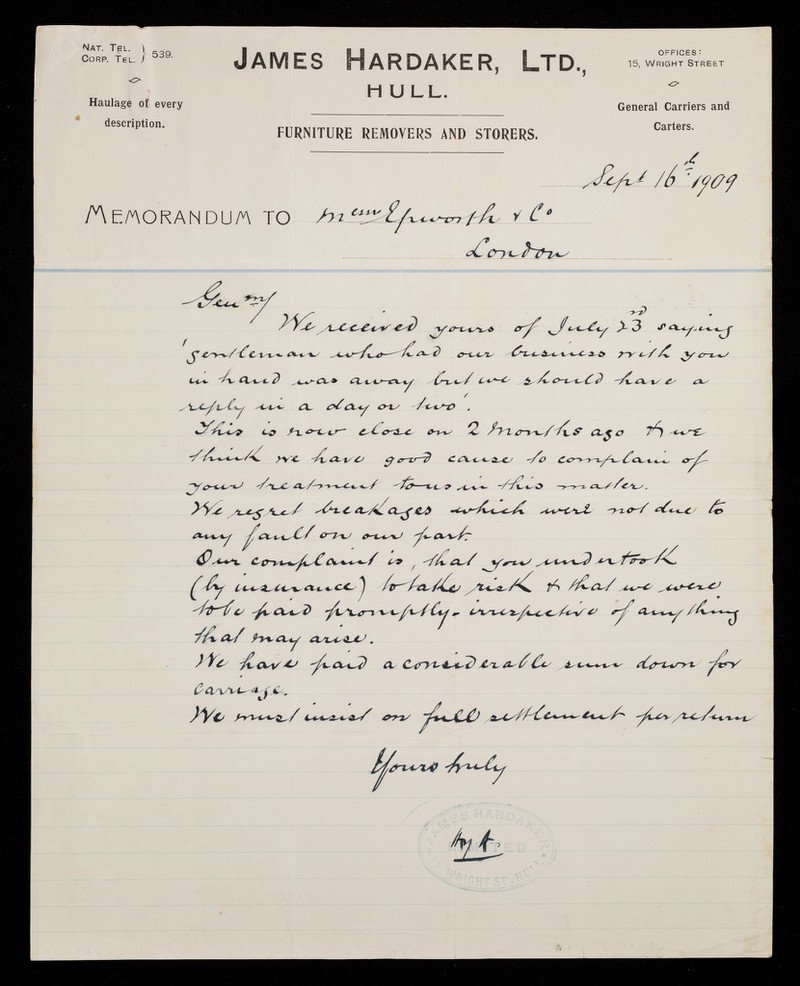 NAT. TEL. } 539.
CORP. TEL.
Haulage of every
description.
JAMES HARDAKER, LTD.,
HULL.
FURNITURE REMOVERS AND STORERS.
OFFICES:
15, WRIGHT STREET
General Carriers and
Carters.
Sept 16th 1909
MEMORANDUM TO Messrs Epworth & Co
London
Gentm/
We received yours of July 23rd saying
'gentleman who had our business with you
in hand was away but we should have a
reply in a day or two'.
This is now close on 2 Months ago & we
think we have good cause to complain of
your treatment to us in this matter.
We regret breakages which were not due to
any fault on our part.
Our complaint is, that you undertook
(by insurance) to take risk & that we were
to be paid promptly - irrespective of any thing
that may arise.
We have paid a considerable sum down for
Carriage.
We must insist on full settlement per return
Yours truly
JAMES HARDAKER
LIMITED
WRIGHT ST. HULL